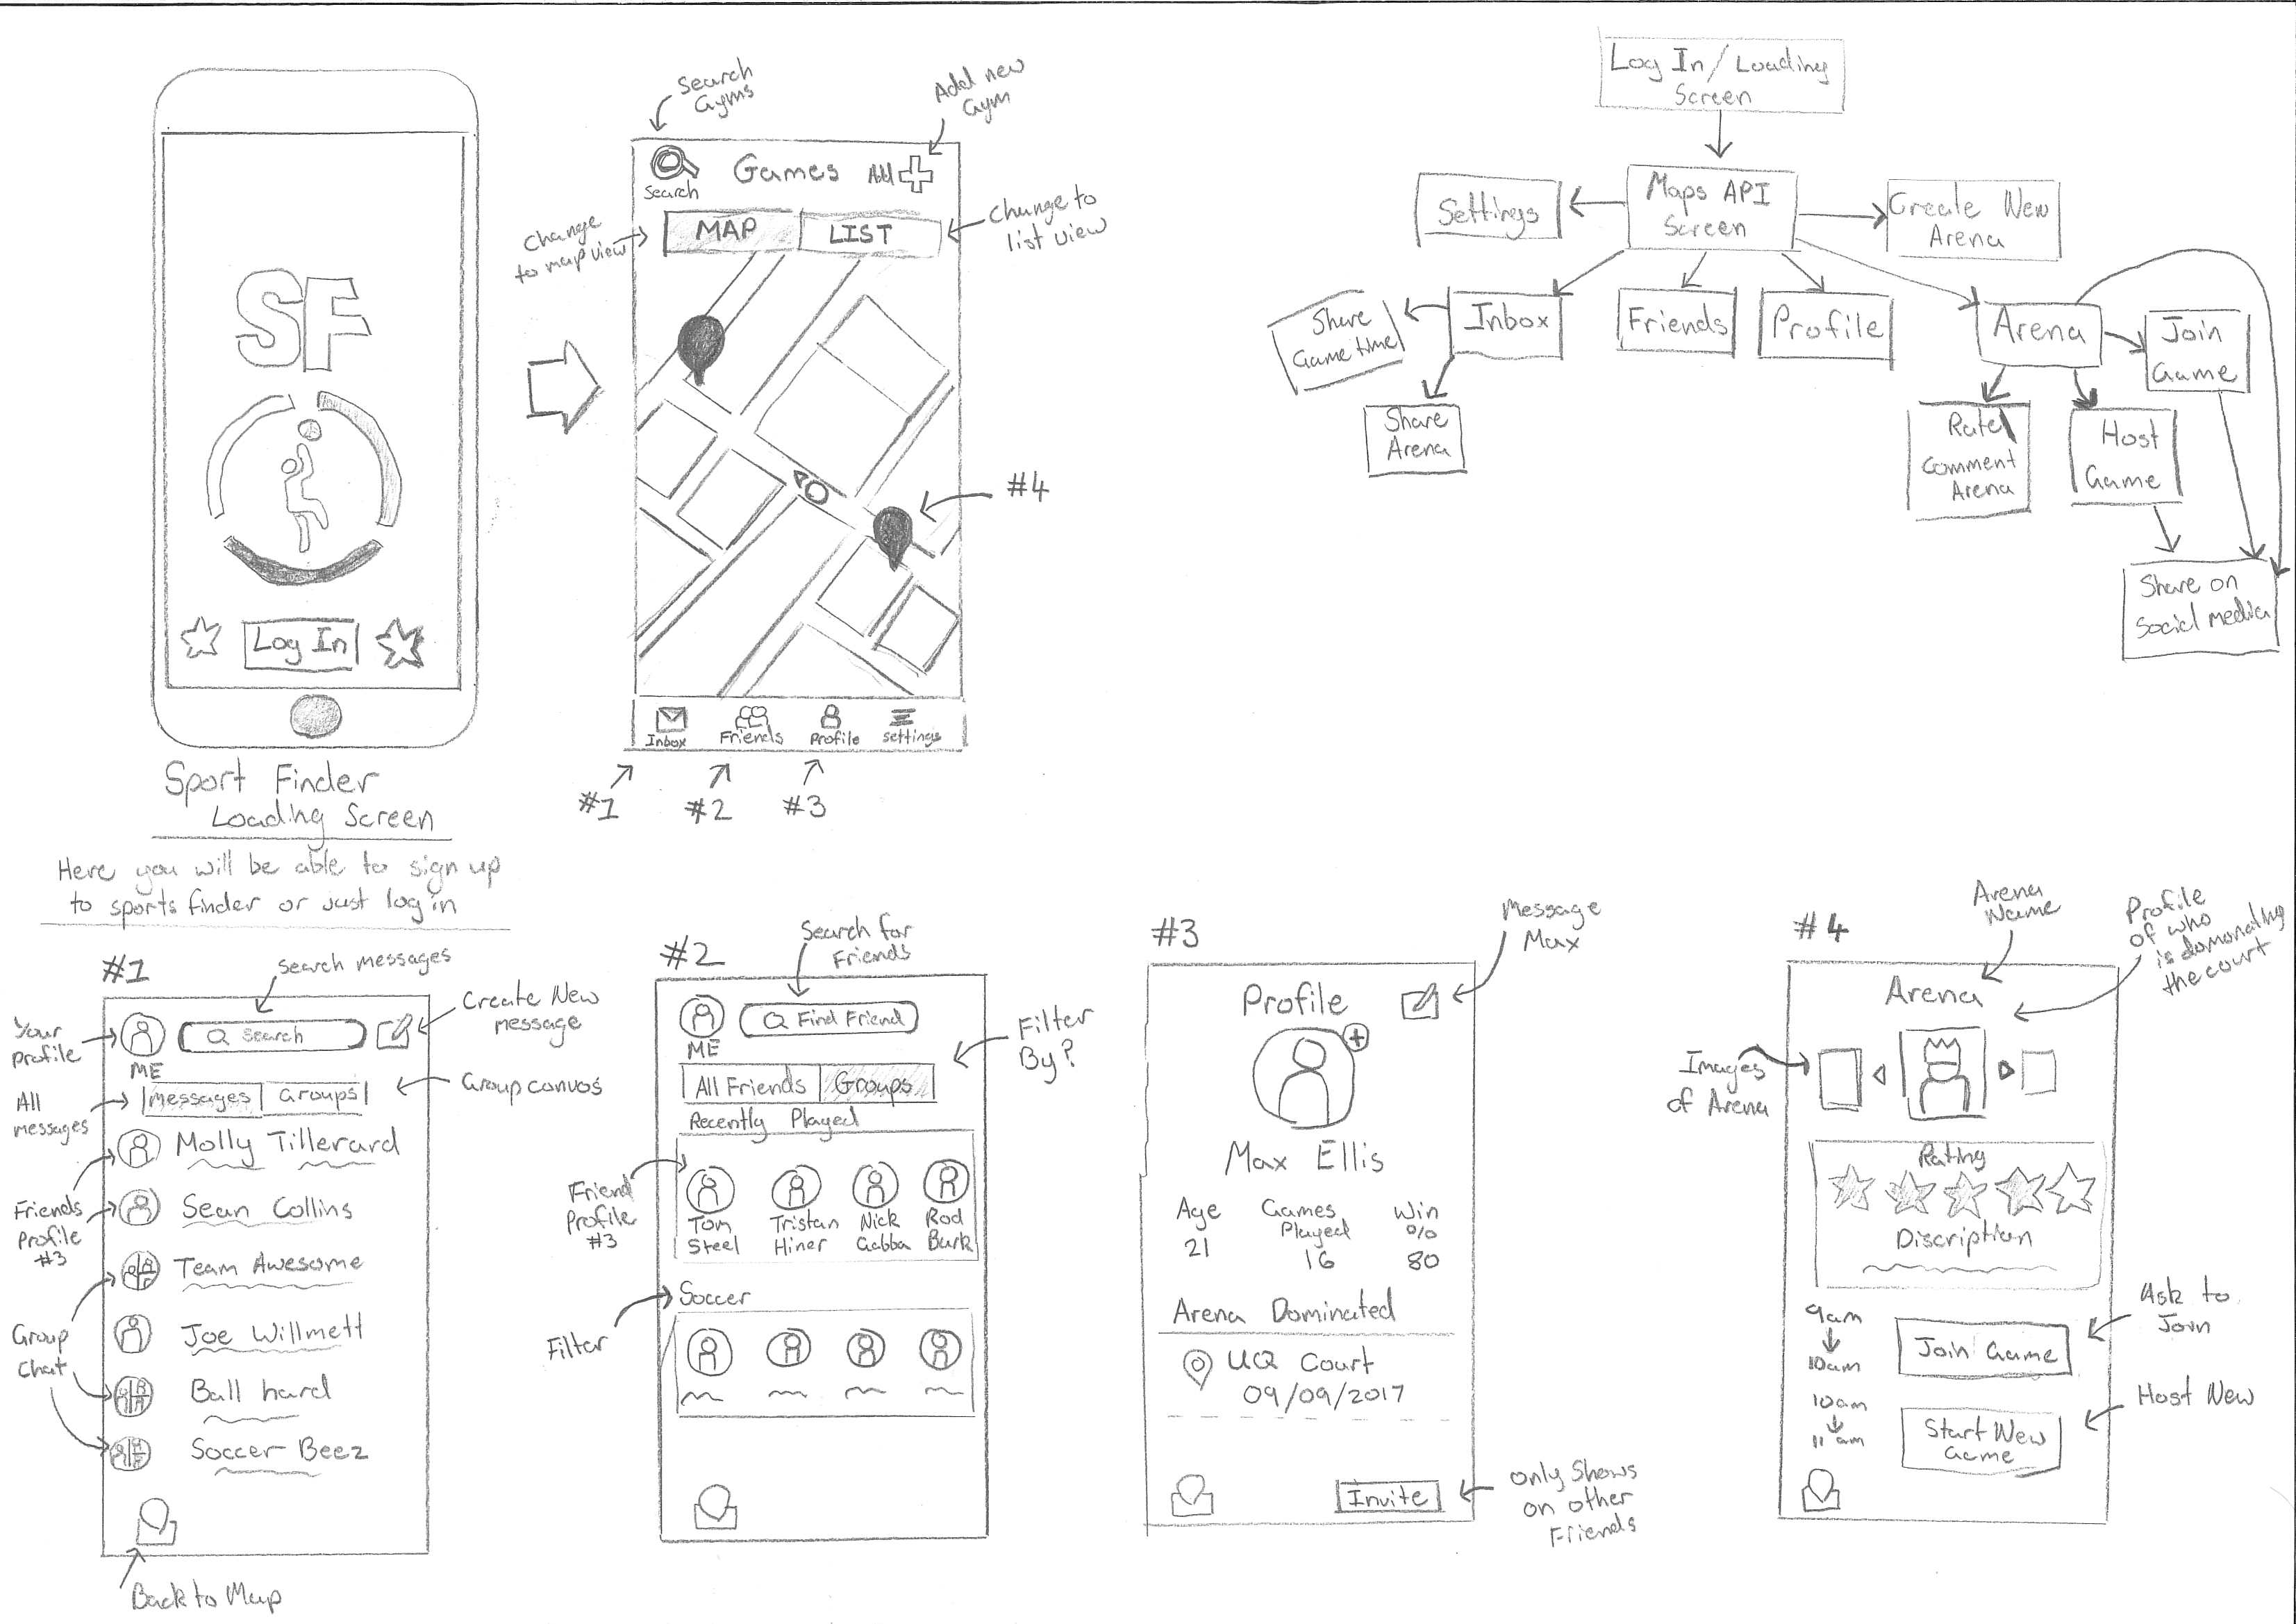 SF
Log In
Sport Finder
Loading Screen
Here you will be able to sign up
to sports finder or just log in
Search
Gyms
Add new
Gym
Search
Games
Add
MAP
LIST
Change
to map view
Change to
list view
#4
Inbox
Friends
Profile
settings
#1
#2
#3
Log In / Loading
Screen
Maps API
Screen
Settings
Create New
Arena
Share
Game time
Inbox
Friends
Profile
Arena
Join
Game
Share
Arena
Rate
Comment
Arena
Host
Game
Share on
Social media
#1
Search messages
Create New
message
Your
profile
Search
ME
Group convos
All
messages
Messages
Groups
Molly Tillerard
Sean Collins
Friends
Profile
#3
Team Awesome
Joe Willmett
Group
Chat
Ball hard
Soccer Beez
Back to Map
#2
Search for
Friends
ME
Find Friend
Filter
By?
All Friends
Groups
Recently Played
Friend
Profile
#3
Tom
Steel
Tristan
Hiner
Nick
Gabba
Rod
Burk
Soccer
Filter
#3
Message
Max
Profile
Max Ellis
Age
21
Games
Played
16
Win
%
80
Arena Dominated
UQ Court
09/09/2017
Invite
only shows
on other
Friends
#4
Arena
Name
Profile
of who
is domonating
the court
Arena
Images
of Arena
Rating
Discription
9am
10am
Join Game
Ask to
Join
10am
11am
Start New
Game
Host New